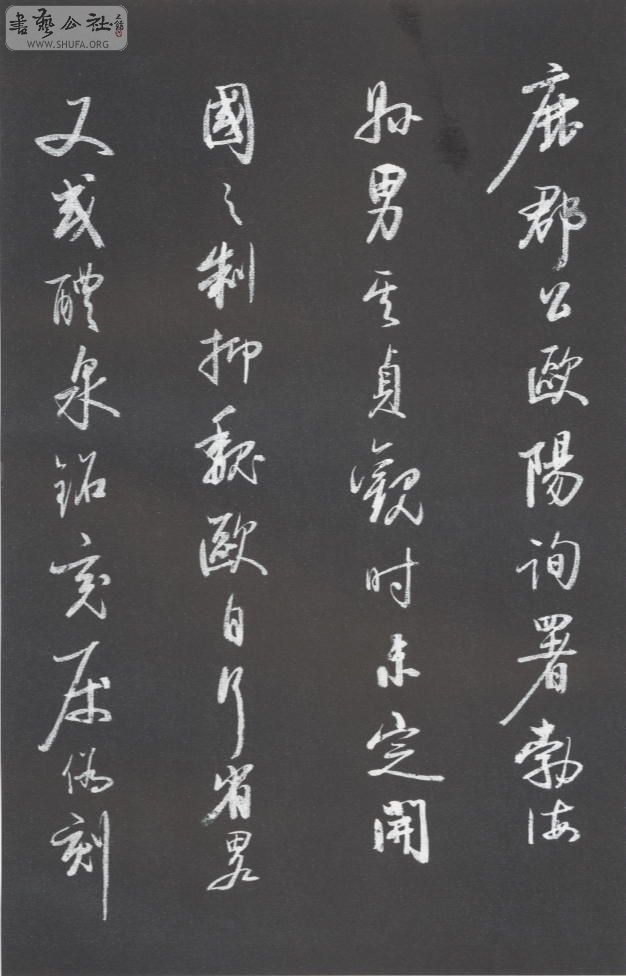 書藝公社
WWW.SHUFA.ORG
鹿郡公歐陽詢署勃海
縣男其貞觀時未定開
國之制抑魏歐自行省畧
又或醴泉銘竟屬偽刻